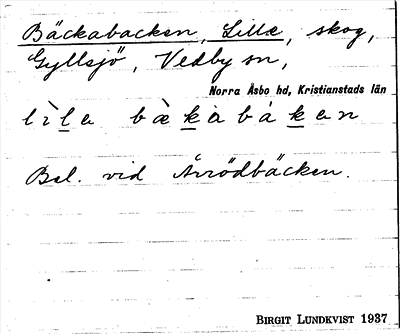 Bäckabacken, Lille, skog,
Gyllsjö, Vedby sn,
Norra Åsbo hd, Kristianstads län
lìle bæ̀kàbákan
Bel. vid Åvrödbäcken.
BIRGIT LUNDKVIST 1937